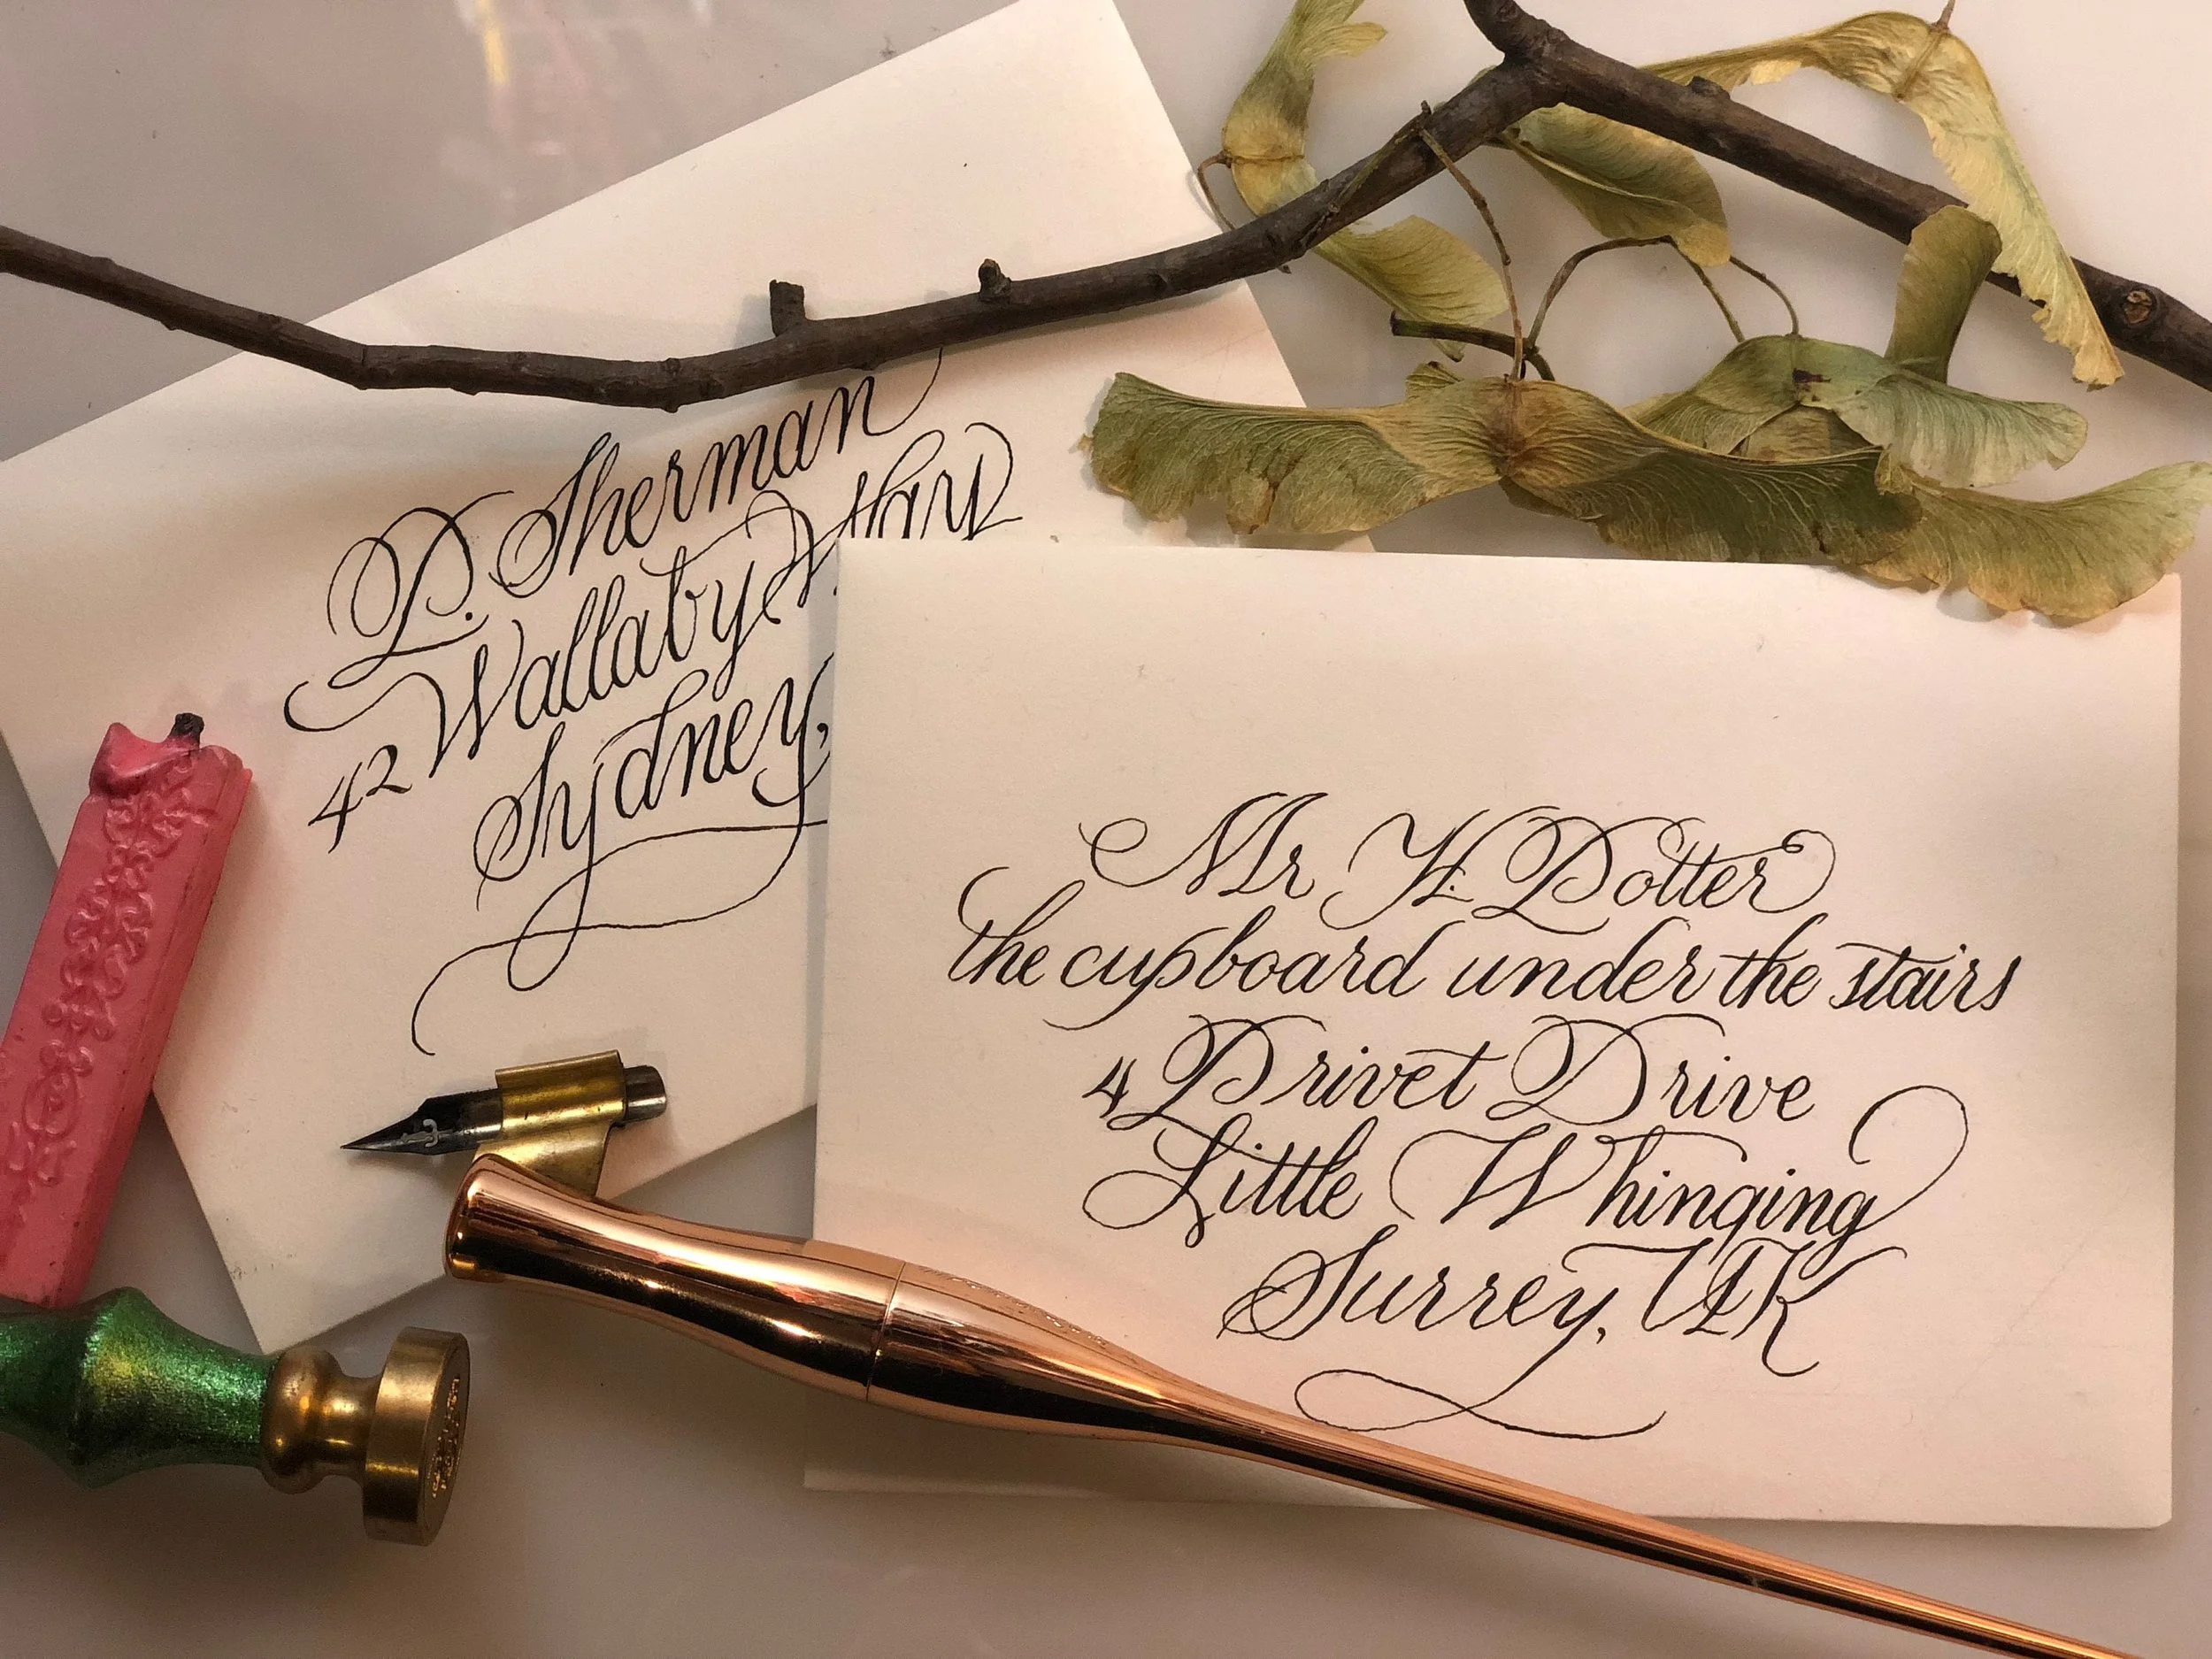 P. Sherman
42 Wallaby Way
Sydney,
Mr H. Potter
the cupboard under the stairs
4 Privet Drive
Little Whinging
Surrey, UK